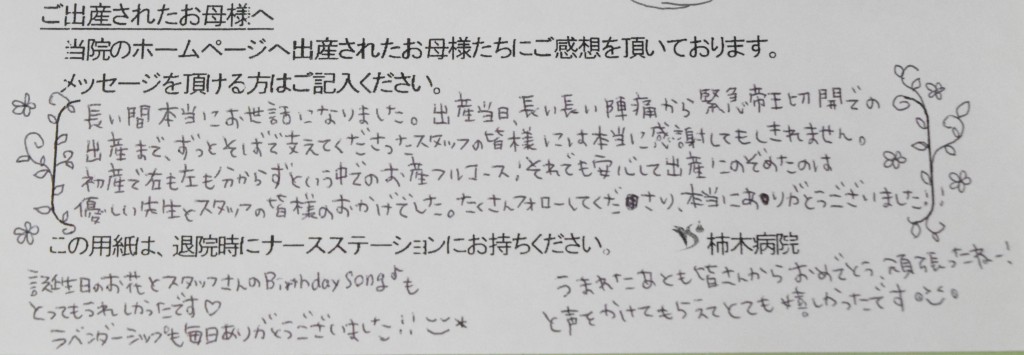 ご出産されたお母様へ
当院のホームページへ出産されたお母様たちにご感想を頂いております。
メッセージを頂ける方はご記入ください。
長い間本当にお世話になりました。出産当日、長い長い陣痛から緊急帝王切開での
出産まで、ずっとそばで支えてくださったスタッフの皆様には本当に感謝してもしきれません。
初産で右も左も分からずという中でのお産フルコース!それでも安心して出産にのぞめたのは
優しい先生とスタッフの皆様のおかげでした。たくさんフォローしてくださり、本当にありがとうございました!!
この用紙は、退院時にナースステーションにお持ちください。 柿木病院
誕生日のお花とスタッフさんのBirthday song♪も
とってもうれしかったです♡
ラベンダーシップも毎日ありがとうございました!!
うまれたあとも皆さんからおめでとう、頑張ったねー!
と声をかけてもらえてとても嬉しかったです。